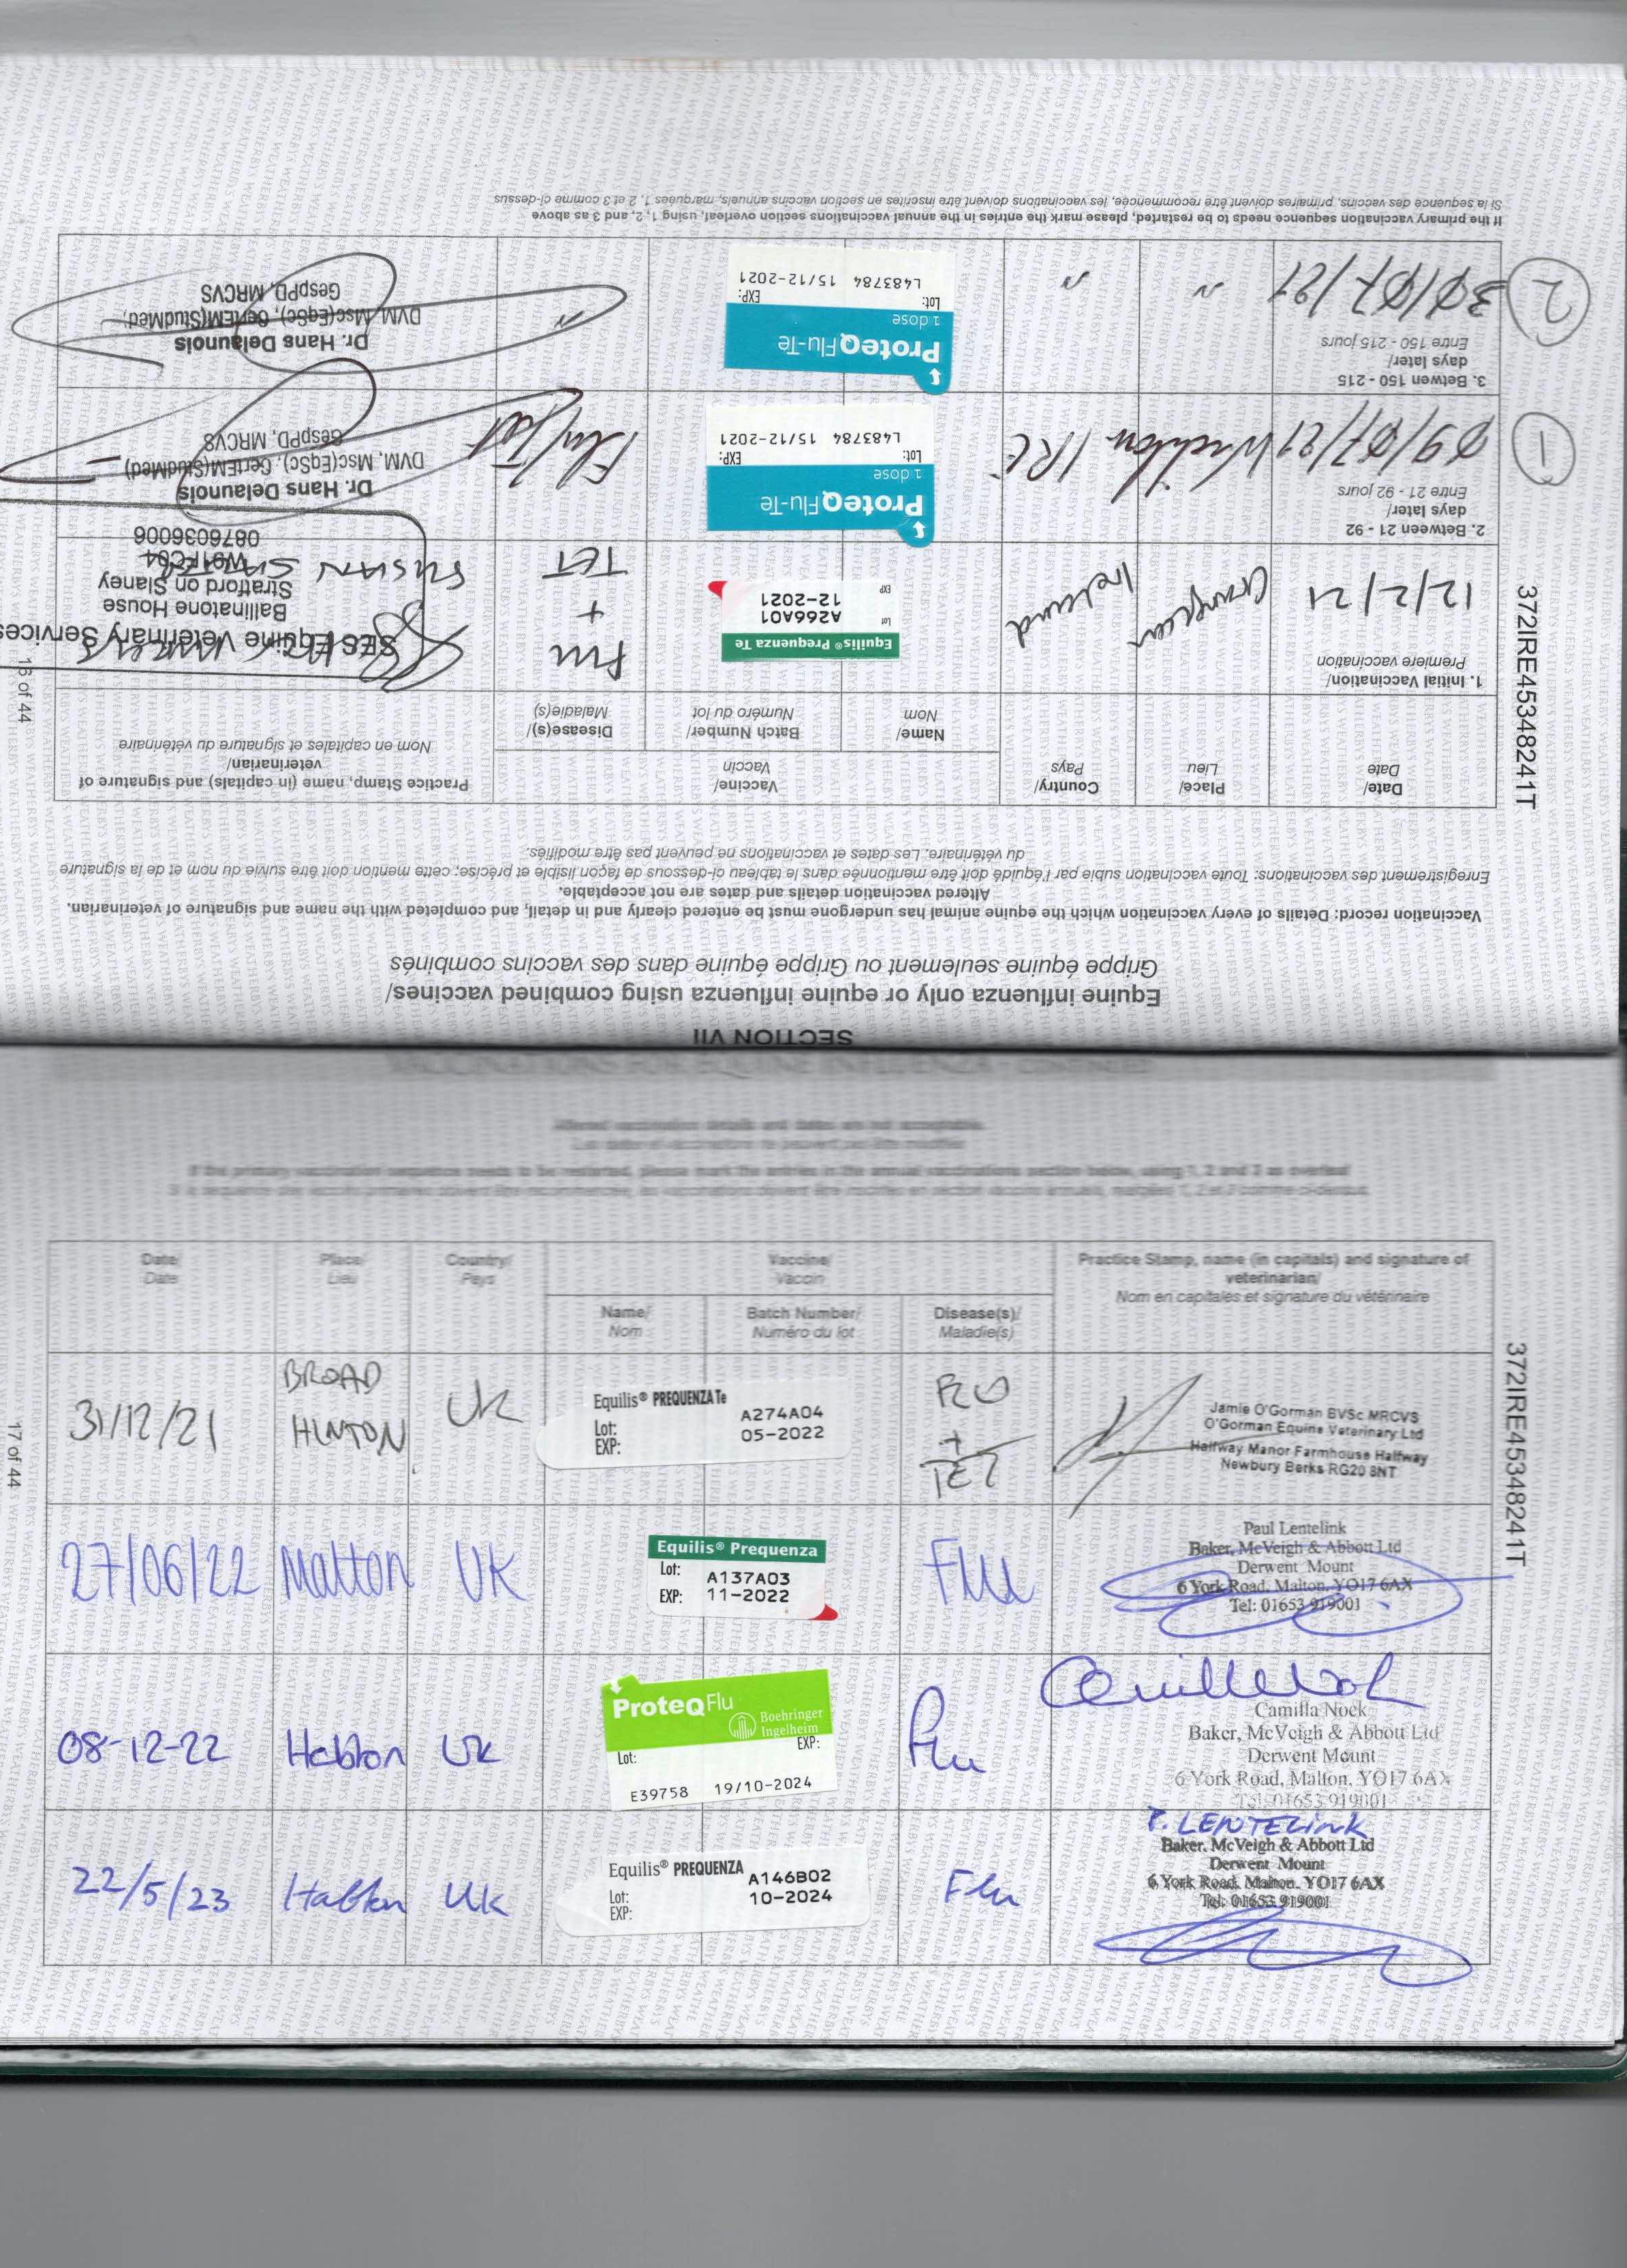 SECTION VII
Equine influenza only or equine influenza using combined vaccines/
Grippe équine seulement ou Grippe équine dans des vaccins combinés
Vaccination record: Details of every vaccination which the equine animal has undergone must be entered clearly and in detail, and completed with the name and signature of veterinarian.
Altered vaccination details and dates are not acceptable.
Enregistrement des vaccinations: Toute vaccination subie par l'équidé doit être mentionnée dans le tableau ci-dessous de façon lisible et précise; cette mention doit être suivie du nom et de la signature
du vétérinaire. Les dates et vaccinations ne peuvent pas être modifiés.
372IRE45348241T
Date/
Date
Place/
Lieu
Country/
Pays
Vaccine/
Vaccin
Name/
Nom
Batch Number/
Numéro du lot
Disease(s)/
Maladie(s)
Practice Stamp, name (in capitals) and signature of
veterinarian/
Nom en capitales et signature du vétérinaire
16 of 44
1. Initial Vaccination/
Premiere vaccination
12/2/21
Ireland
Equilis® Prequenza Te
Lot A266A01
EXP 12-2021
Flu
+
TET
SES Equine Veterinary Services
Ballinatone House
Stratford on Slaney
W91FC04
0876036006
2. Between 21 - 92
days later/
Entre 21 - 92 jours
1
09/07/21
IRE
ProteqFlu-Te
1 dose
Lot: EXP:
L483784 15/12-2021
Flu/Tet
Dr. Hans Delaunois
DVM, Msc(EqSc), CertEM(StudMed)
GespPD, MRCVS
3. Betwen 150 - 215
days later/
Entre 150 - 215 jours
2
30/07/21
"
"
ProteqFlu-Te
1 dose
Lot: EXP:
L483784 15/12-2021
"
Dr. Hans Delaunois
DVM, Msc(EqSc), CertEM(StudMed),
GespPD, MRCVS
If the primary vaccination sequence needs to be restarted, please mark the entries in the annual vaccinations section overleaf, using 1, 2, and 3 as above
Si la sequence des vaccins, primaires doivent être recommencée, les vaccinations doivent être inscrites en section vaccins annuels, marquées 1, 2 et 3 comme ci-dessus
VACCINATIONS FOR EQUINE INFLUENZA - CONTINUED
Altered vaccination details and dates are not acceptable.
Les dates et vaccinations ne peuvent pas être modifiés
If the primary vaccination sequence needs to be restarted, please mark the entries in the annual vaccinations section below, using 1, 2 and 3 as overleaf
372IRE45348241T
Date/
Date
Place/
Lieu
Country/
Pays
Vaccine/
Vaccin
Name/
Nom
Batch Number/
Numéro du lot
Disease(s)/
Maladie(s)
Practice Stamp, name (in capitals) and signature of
veterinarian/
Nom en capitales et signature du vétérinaire
17 of 44
31/12/21
BROAD
HINTON
UK
Equilis® PREQUENZA Te
Lot: A274A04
EXP: 05-2022
FLU
+
TET
Jamie O'Gorman BVSc MRCVS
O'Gorman Equine Veterinary Ltd
Halfway Manor Farmhouse Halfway
Newbury Berks RG20 8NT
27/06/22
Malton
UK
Equilis® Prequenza
Lot: A137A03
EXP: 11-2022
Flu
Paul Lentelink
Baker, McVeigh & Abbott Ltd
Derwent Mount
6 York Road, Malton, YO17 6AX
Tel: 01653 919001
08-12-22
Habton
UK
ProteqFlu
Boehringer
Ingelheim
Lot: EXP:
E39758 19/10-2024
Flu
Camilla Nock
Baker, McVeigh & Abbott Ltd
Derwent Mount
6 York Road, Malton, YO17 6AX
Tel: 01653 919001
22/5/23
Habton
UK
Equilis® PREQUENZA
Lot: A146B02
EXP: 10-2024
Flu
P. LENTELINK
Baker, McVeigh & Abbott Ltd
Derwent Mount
6 York Road, Malton, YO17 6AX
Tel: 01653 919001